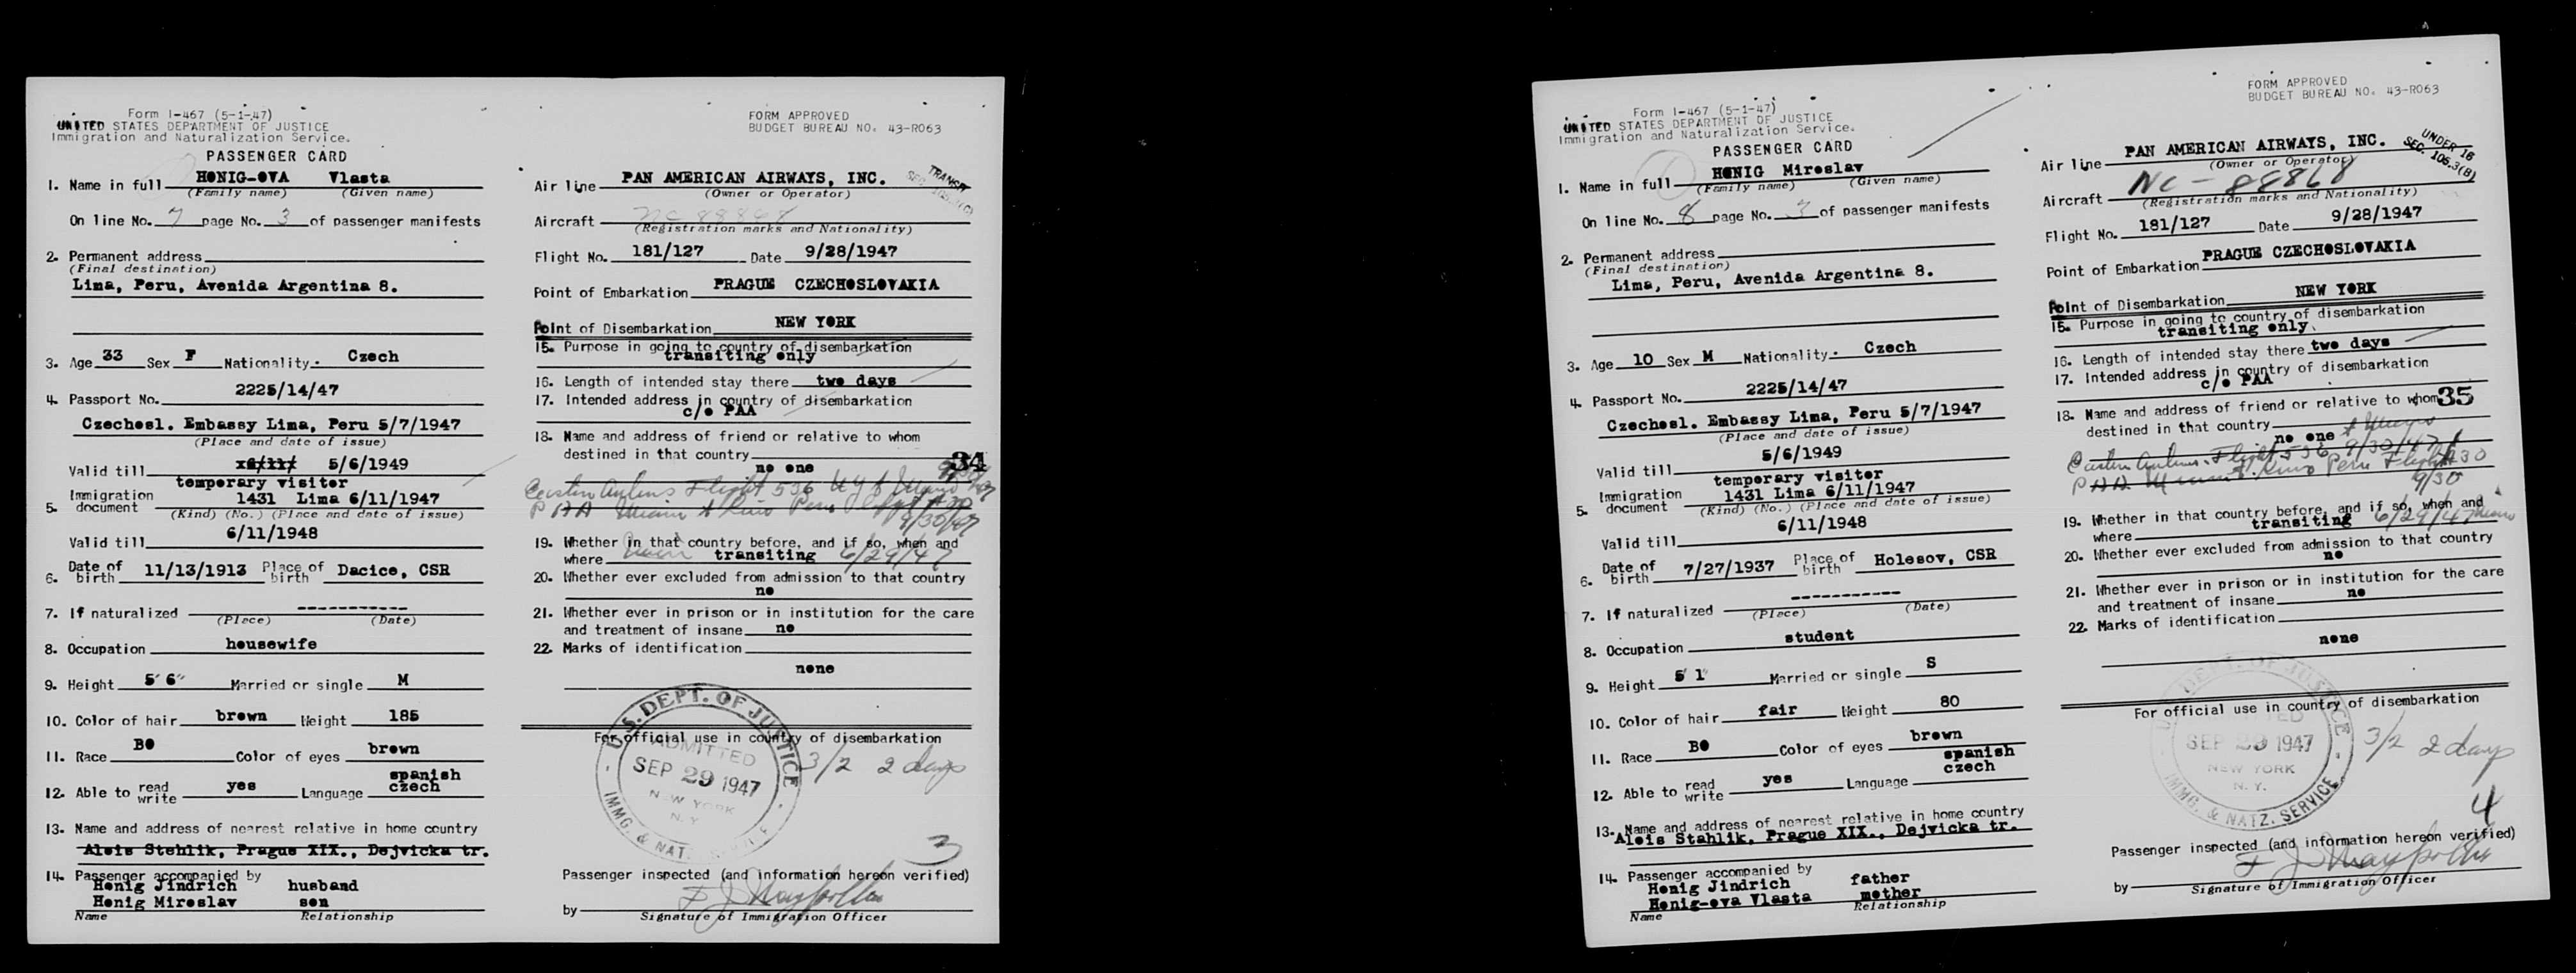 Form I-467 (5-1-47)
UNITED STATES DEPARTMENT OF JUSTICE
Immigration and Naturalization Service.
PASSENGER CARD
1. Name in full HONIG-OVA Vlasta
(Family name) (Given name)
On line No. 7 page No. 3 of passenger manifests
2. Permanent address
(Final destination)
Lima, Peru, Avenida Argentina 8.
3. Age 33 Sex F Nationality Czech
2225/14/47
4. Passport No.
Czechosl. Embassy Lima, Peru 5/7/1947
(Place and date of issue)
Valid till 5/6/1949
temporary visitor
5. Immigration document 1431 Lima 6/11/1947
(Kind) (No.) (Place and date of issue)
Valid till 6/11/1948
6. Date of birth 11/13/1913 Place of birth Dacice, CSR
7. If naturalized -----------
(Place) (Date)
8. Occupation housewife
9. Height 5' 6" Married or single M
10. Color of hair brown Weight 185
11. Race BO Color of eyes brown
12. Able to read write yes Language spanish czech
13. Name and address of nearest relative in home country
Alois Stehlik, Prague XIX., Dejvicka tr.
14. Passenger accompanied by
Honig Jindrich husband
Honig Miroslav son
Name Relationship
FORM APPROVED
BUDGET BUREAU NO. 43-R063
TRANSIT
Air line PAN AMERICAN AIRWAYS, INC.
(Owner or Operator)
Aircraft NC 88868
(Registration marks and Nationality)
Flight No. 181/127 Date 9/28/1947
Point of Embarkation PRAGUE CZECHOSLOVAKIA
Point of Disembarkation NEW YORK
15. Purpose in going to country of disembarkation
transiting only
16. Length of intended stay there two days
17. Intended address in country of disembarkation
c/o PAA
18. Name and address of friend or relative to whom
destined in that country
no one 34
Eastern Flight 536
PAA Miami Peru
9/30/47
19. Whether in that country before, and if so, when and
where transiting 6/29/47
20. Whether ever excluded from admission to that country
no
21. Whether ever in prison or in institution for the care
and treatment of insane no
22. Marks of identification
none
For official use in country of disembarkation
U.S. DEPT. OF JUSTICE
ADMITTED
SEP 29 1947
NEW YORK
N.Y.
IMMG. & NATZ. SERVICE
3/2 2 days
3
Passenger inspected (and information hereon verified)
by
Signature of Immigration Officer
Form I-467 (5-1-47)
UNITED STATES DEPARTMENT OF JUSTICE
Immigration and Naturalization Service.
PASSENGER CARD
1. Name in full HONIG Miroslav
(Family name) (Given name)
On line No. 8 page No. 3 of passenger manifests
2. Permanent address
(Final destination)
Lima, Peru, Avenida Argentina 8.
3. Age 10 Sex M Nationality Czech
2225/14/47
4. Passport No.
Czechosl. Embassy Lima, Peru 5/7/1947
(Place and date of issue)
Valid till 5/6/1949
temporary visitor
5. Immigration document 1431 Lima 6/11/1947
(Kind) (No.) (Place and date of issue)
Valid till 6/11/1948
6. Date of birth 7/27/1937 Place of birth Holesov, CSR
7. If naturalized -----------
(Place) (Date)
8. Occupation student
9. Height 5' 1" Married or single S
10. Color of hair fair Weight 80
11. Race BO Color of eyes brown
12. Able to read write yes Language spanish czech
13. Name and address of nearest relative in home country
Alois Stahlik, Prague XIX., Dejvicka tr.
14. Passenger accompanied by
Honig Jindrich father
Honig-ova Vlasta mother
Name Relationship
FORM APPROVED
BUDGET BUREAU NO. 43-R063
UNDER 16
SEC. 106.3(B)
Air line PAN AMERICAN AIRWAYS, INC.
(Owner or Operator)
Aircraft NC - 88868
(Registration marks and Nationality)
Flight No. 181/127 Date 9/28/1947
Point of Embarkation PRAGUE CZECHOSLOVAKIA
Point of Disembarkation NEW YORK
15. Purpose in going to country of disembarkation
transiting only
16. Length of intended stay there two days
17. Intended address in country of disembarkation
c/o PAA
18. Name and address of friend or relative to whom 35
destined in that country
no one
Eastern Flight 536 9/30/47
PAA Peru Flight
9/30
19. Whether in that country before, and if so, when and
where transiting 6/29/47
20. Whether ever excluded from admission to that country
no
21. Whether ever in prison or in institution for the care
and treatment of insane no
22. Marks of identification
none
For official use in country of disembarkation
DEPT. OF JUSTICE
SEP 29 1947
NEW YORK
N.Y.
IMMG. & NATZ. SERVICE
3/2 2 days
4
Passenger inspected (and information hereon verified)
by
Signature of Immigration Officer